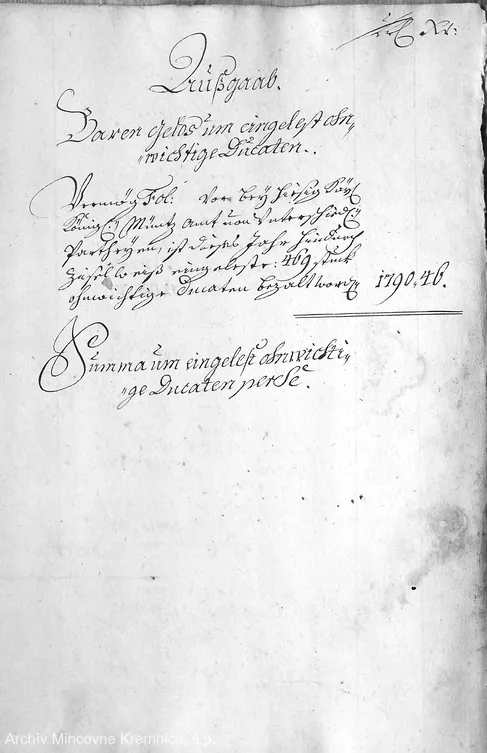 Außgaab.
Baren Gelds um eingelest ohn,
„wichtige Ducaten.
Vermög Fol: Vor bey hiesig Kay:
König: Münz Amt von Unterschied:
Partheyen, ist dieses Jahr hindurch
eingeleste: 469 stuck
ohnwichtige Ducaten bezalt word 1790.46.
Summa um eingelest ohnwichti„
„ge Ducaten per Se.
Archiv Mincovne Kremnica, š.p.